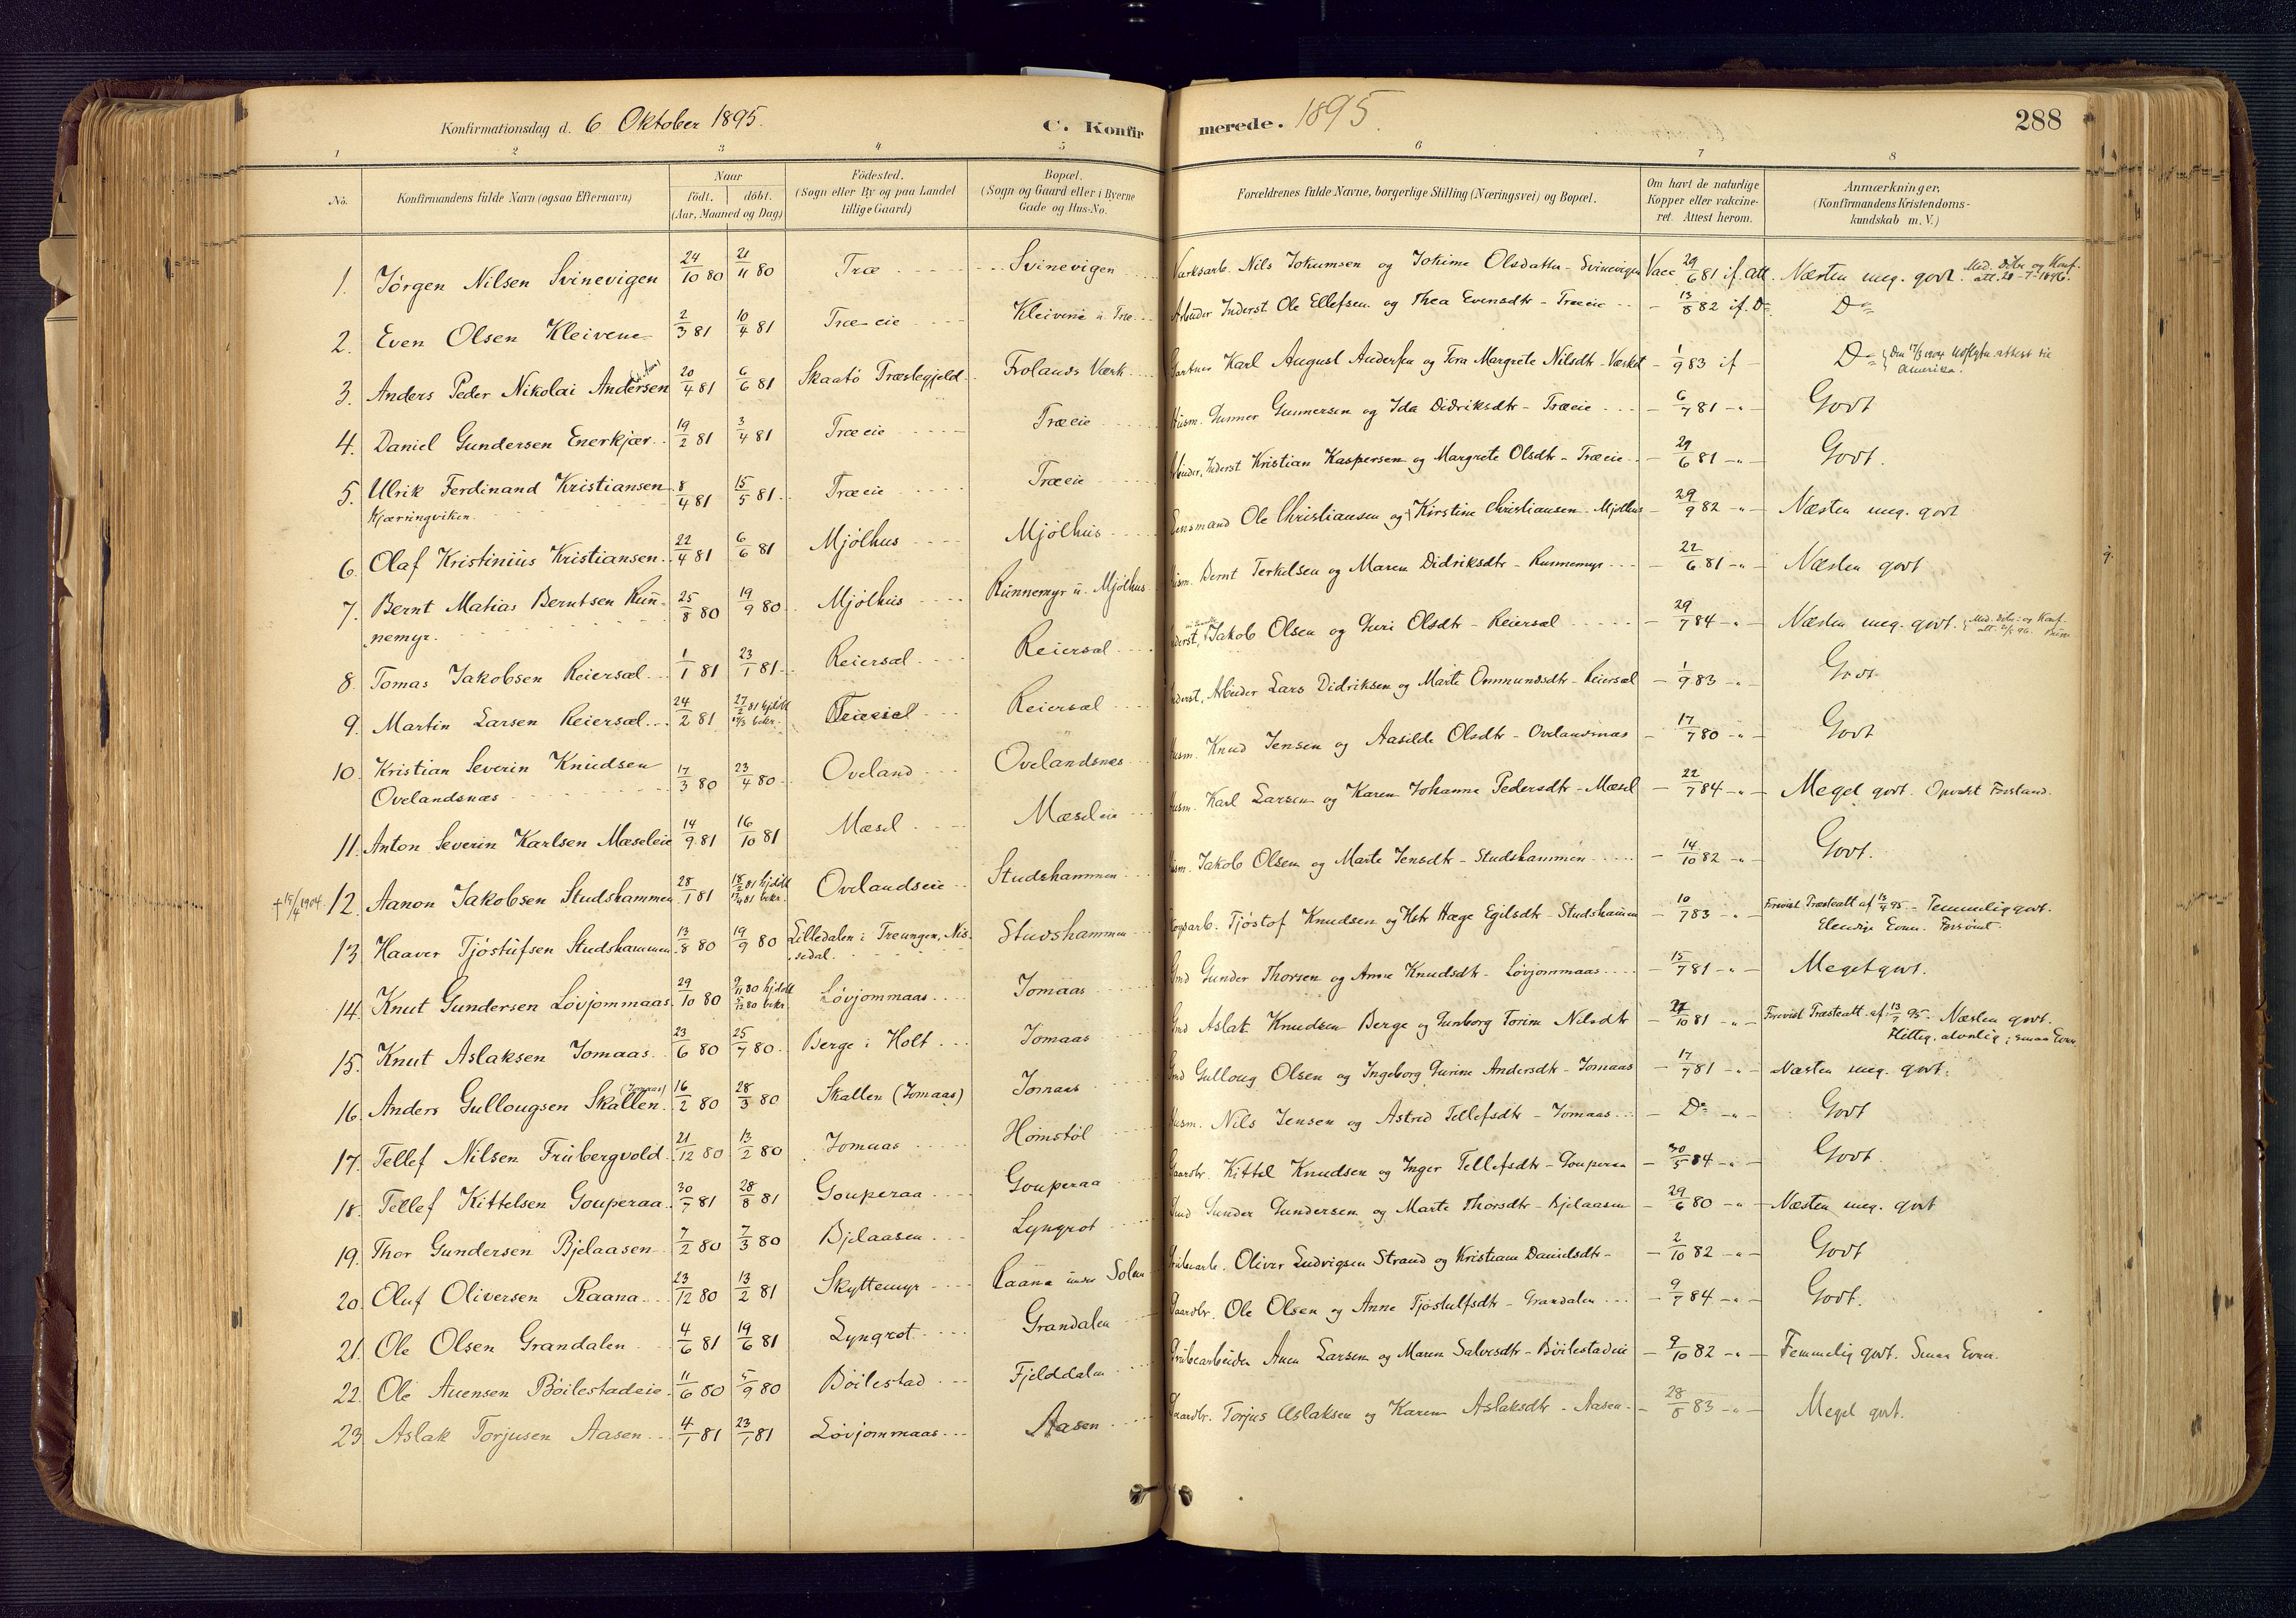 Konfirmationsdag d. 6 Oktober 1895. C. Konfir merede. 1895. 288
1 2 3 4 5 6 7 8
No. Konfirmandens fulde Navn (ogsaa Efternavn) Naar født. døbt. (Aar, Maaned og Dag) Fødested. (Sogn eller By og paa Landet tillige Gaard) Bopæl. (Sogn og Gaard eller i Byerne Gade og Hus-No. Forældrenes fulde Navne, borgerlige Stilling (Næringsvei) og Bopæl. Om havt de naturlige Kopper eller vakcineret. Attest herom. Anmærkninger. (Konfirmandens Kristendomskundskab m. V.)
1. Jörgen Nilsen Svinevigen 24/10 80 21/11 80 Træ Svinevigen Værksarb. Nils Jokumsen og Jokime Olsdatter - Svinevigen Vacc 29/6 81 if. att. Næsten meg. godt. Med. Döbe og Konf. att. 20-7-1896.
2. Even Olsen Kleivene 2/3 81 10/4 81 Træ eie Kleivene u. Træ Arbeider Inderst Ole Ellefsen og Thea Evensdtr - Træeie - 13/8 82 if. Do Do
3. Anders Peder Nikolai Andersen 20/4 81 6/6 81 Skaatö Præstegjeld Frolands Værk Gartner Karl August Andersen og Tora Margrete Nilsdtr - Værket - 1/9 83 if - Do Den 17/3 1904 Udflytn. attest til Amerika.
4. Daniel Gundersen Enerkjær 19/2 81 3/4 81 Træeie Træeie Husm. Gunner Gunnersen og Ida Didriksdtr - Træeie - 6/7 81 -"- Godt
5. Ulrik Ferdinand Kristiansen 8/4 81 15/5 81 Træeie Træeie Arbeider, Inderst Kristian Kaspersen og Margrete Olsdtr - Træeie - 29/6 81 -"- Godt.
Kjærringviken
6. Olaf Kristinius Kristiansen 22/4 81 6/6 81 Mjölhus Mjölhus Lensmand Ole Christiansen og Kirstine Christiansen - Mjölhus - 29/9 82 -"- Næsten meg. godt
7. Bernt Matias Berntsen Run- 25/8 80 19/9 80 Mjölhus Runnemyr u. Mjölhus Husm. Bernt Terkelsen og Maren Didriksdtr - Runnemyr - 22/6 81 -"- Næsten godt
nemyr.
8. Tomas Jakobsen Reiersøl 1/1 81 23/1 81 Reiersøl Reiersøl Inderst, Jakob Olsen og Guri Olsdtr - Reiersøl - 29/7 84 -"- Næsten meg. godt. Med. Döbe- og Konf.
9. Martin Larsen Reiersøl 24/2 81 27/2 81 hjdöbt bekr. Reiersøl Inderst, Arbeider Lars Didriksen og Marte Ommundsdtr - Reiersøl - 1/9 83 -"- Godt
10. Kristian Severin Knudsen 17/3 80 23/4 80 Oveland Ovelandsnes Husm. Knud Jensen og Aasilde Olsdtr - Ovelandsnæs - 17/7 80 -"- Godt
Ovelandsnæs
11. Anton Severin Karlsen Mæseleie 14/9 81 16/10 81 Mæsel Mæseleie Husm. Karl Larsen og Karen Johanne Pedersdtr - Mæsel - 22/7 84 -"- Meget godt. Opvakt Forstand.
† 15/4 1904. 12. Aanon Jakobsen Studshammen 28/1 81 18/2 81 hjdöbt bekr. Ovelandseie Studshammen Husm. Jakob Olsen og Marte Jensdtr - Studshammen - 14/10 82 -"- Godt.
13. Haaver Tjöstufsen Studshammen 13/8 80 19/9 80 Lilledalen i Treungen, Nissedal. Studshammen Skogsarb. Tjöstof Knudsen og Hstr Hæge Egilsdtr - Studshammen - 10/7 83 -"- Forevist Præsteatt af 13/9 95 - Temmelig godt.
Elendige Evner. Forsömt.
14. Knut Gundersen Lövjommaas 29/10 80 9/11 80 hjdöbt 5/12 80 bekr. Lövjommaas Jomaas Gmd Gunder Thorsen og Anne Knudsdtr - Lövjommaas - 15/7 81 -"- Meget godt.
15. Knut Aslaksen Jomaas 23/6 80 25/7 80 Berge i Holt Jomaas Gmd Aslak Knudsen Berge og Gunborg Torine Nilsdtr - 27/10 81 -"- Forevist Præsteatt. af 13/7 95. Næsten godt.
Flittig, alvorlig; smaa Evner
16. Anders Gullougsen Skallen (Jomaas) 16/2 80 28/3 80 Skallen (Jomaas) Jomaas Gmd Gulloug Olsen og Ingeborg Gurine Andersdtr - Jomaas - 17/7 81 -"- Næsten meg. godt.
17. Tellef Nilsen Frubergvold 21/12 80 13/2 80 Jomaas Heimstöl Husm. Nils Jensen og Astrid Tellefsdtr - Jomaas - Do -"- Godt
18. Tellef Kittelsen Gouperaa 30/7 81 28/8 81 Gouperaa Gouperaa Gaardbr. Kittel Knudsen og Inger Tellefsdtr - Gouperaa - 30/5 84 -"- Godt.
19. Thor Gundersen Bjelaasen 7/2 80 7/3 80 Bjelaasen Lyngrot Gmd Gunder Gundersen og Marte Thorsdtr - Bjelaasen - 29/6 80 -"- Næsten meg. godt
20. Oluf Oliversen Raana 23/12 80 13/2 81 Skyttemyr Raana under Solem Grubearb. Oliver Ludvigsen Strand og Kristiane Danielsdtr - 2/10 82 -"- Godt
21. Ole Olsen Grandalen 4/6 81 19/6 81 Lyngrot Grandalen Gaardbr. Ole Olsen og Anne Tjöstulfsdtr - Grandalen - 9/7 84 -"- Godt.
22. Ole Auensen Böilestadeie 11/6 80 5/9 80 Böilestad Fjelddalen Grubearbeider Auen Larsen og Maren Salvesdtr - Böilestadeie - 9/10 82 -"- Temmelig godt. Smaa Evner.
23. Aslak Torjusen Aasen 4/1 81 23/1 81 Lövjommaas Aasen Gaardbr. Torjus Aslaksen og Karen Aslaksdtr - Aasen - 28/8 83 -"- Meget godt.